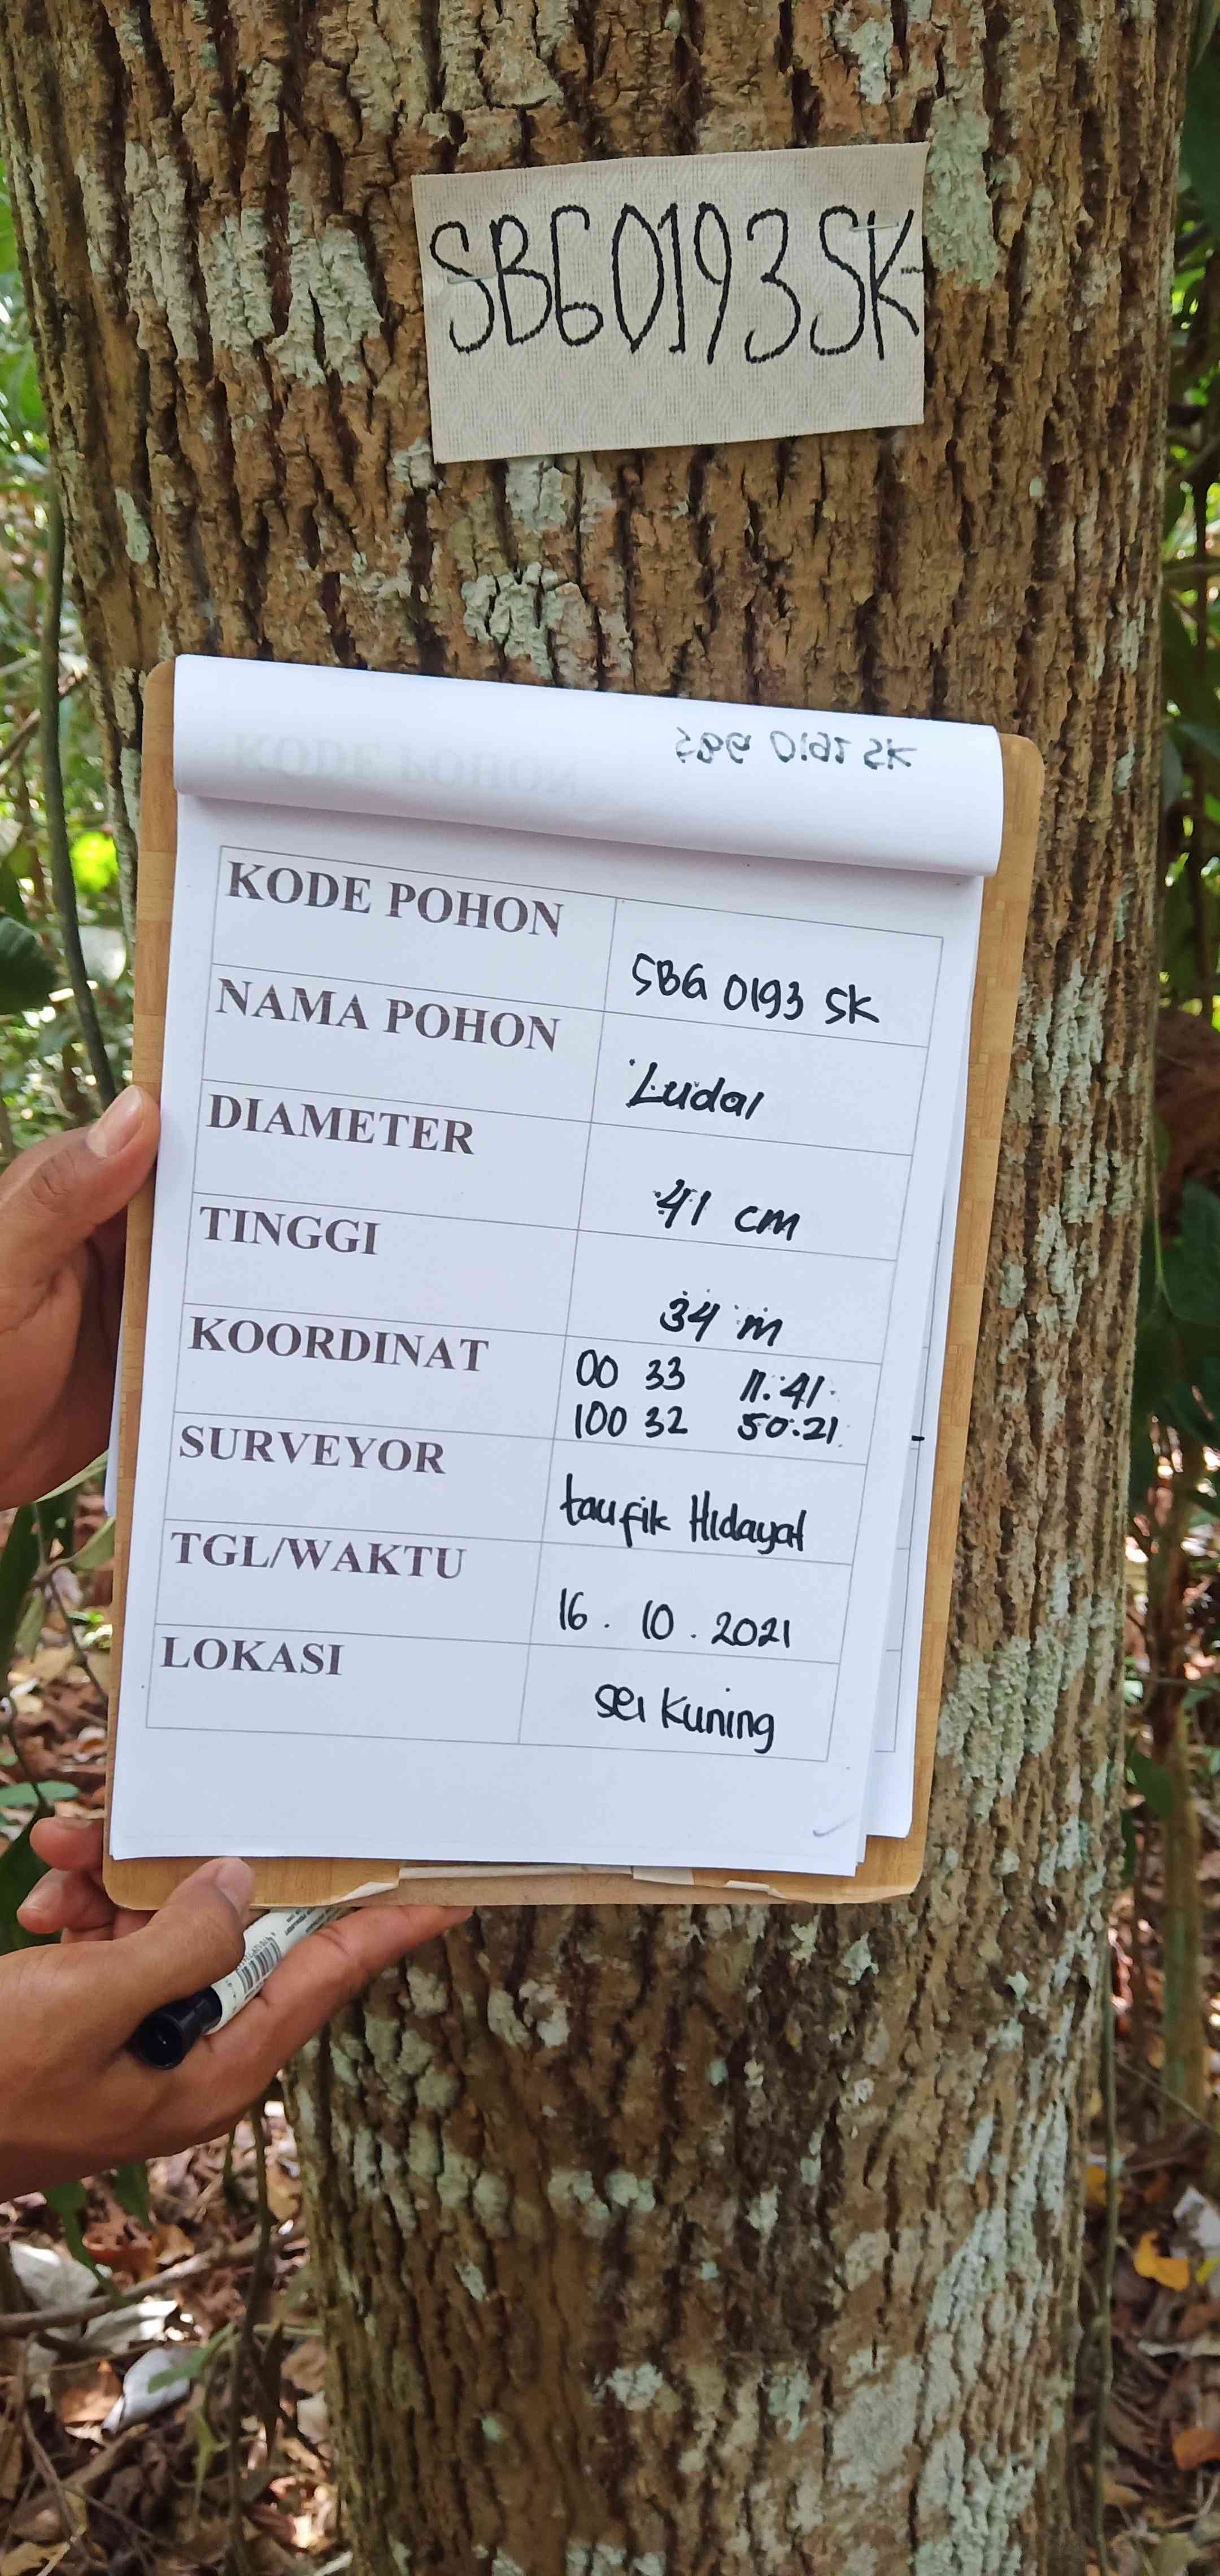 SBG0193SK
SBG 0192 SK
KODE POHON
SBG 0193 SK
NAMA POHON
Ludai
DIAMETER
41 cm
TINGGI
34 m
KOORDINAT
00 33 11.41
100 32 50.21
SURVEYOR
taufik Hidayat
TGL/WAKTU
16. 10. 2021
LOKASI
Sei Kuning